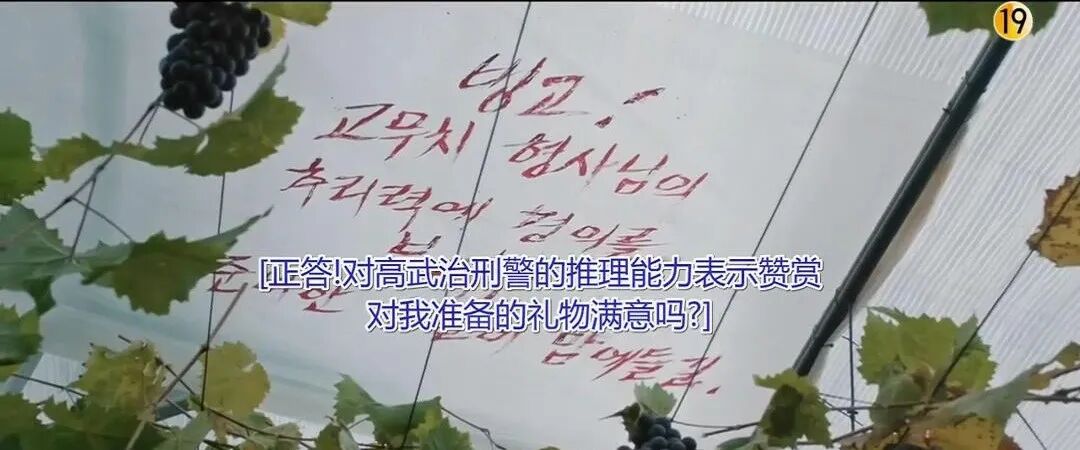 19
빙고!
고무치 형사님의
추리력에 경의를
[正答!对高武治刑警的推理能力表示赞赏
对我准备的礼物满意吗?]
맘에들길.